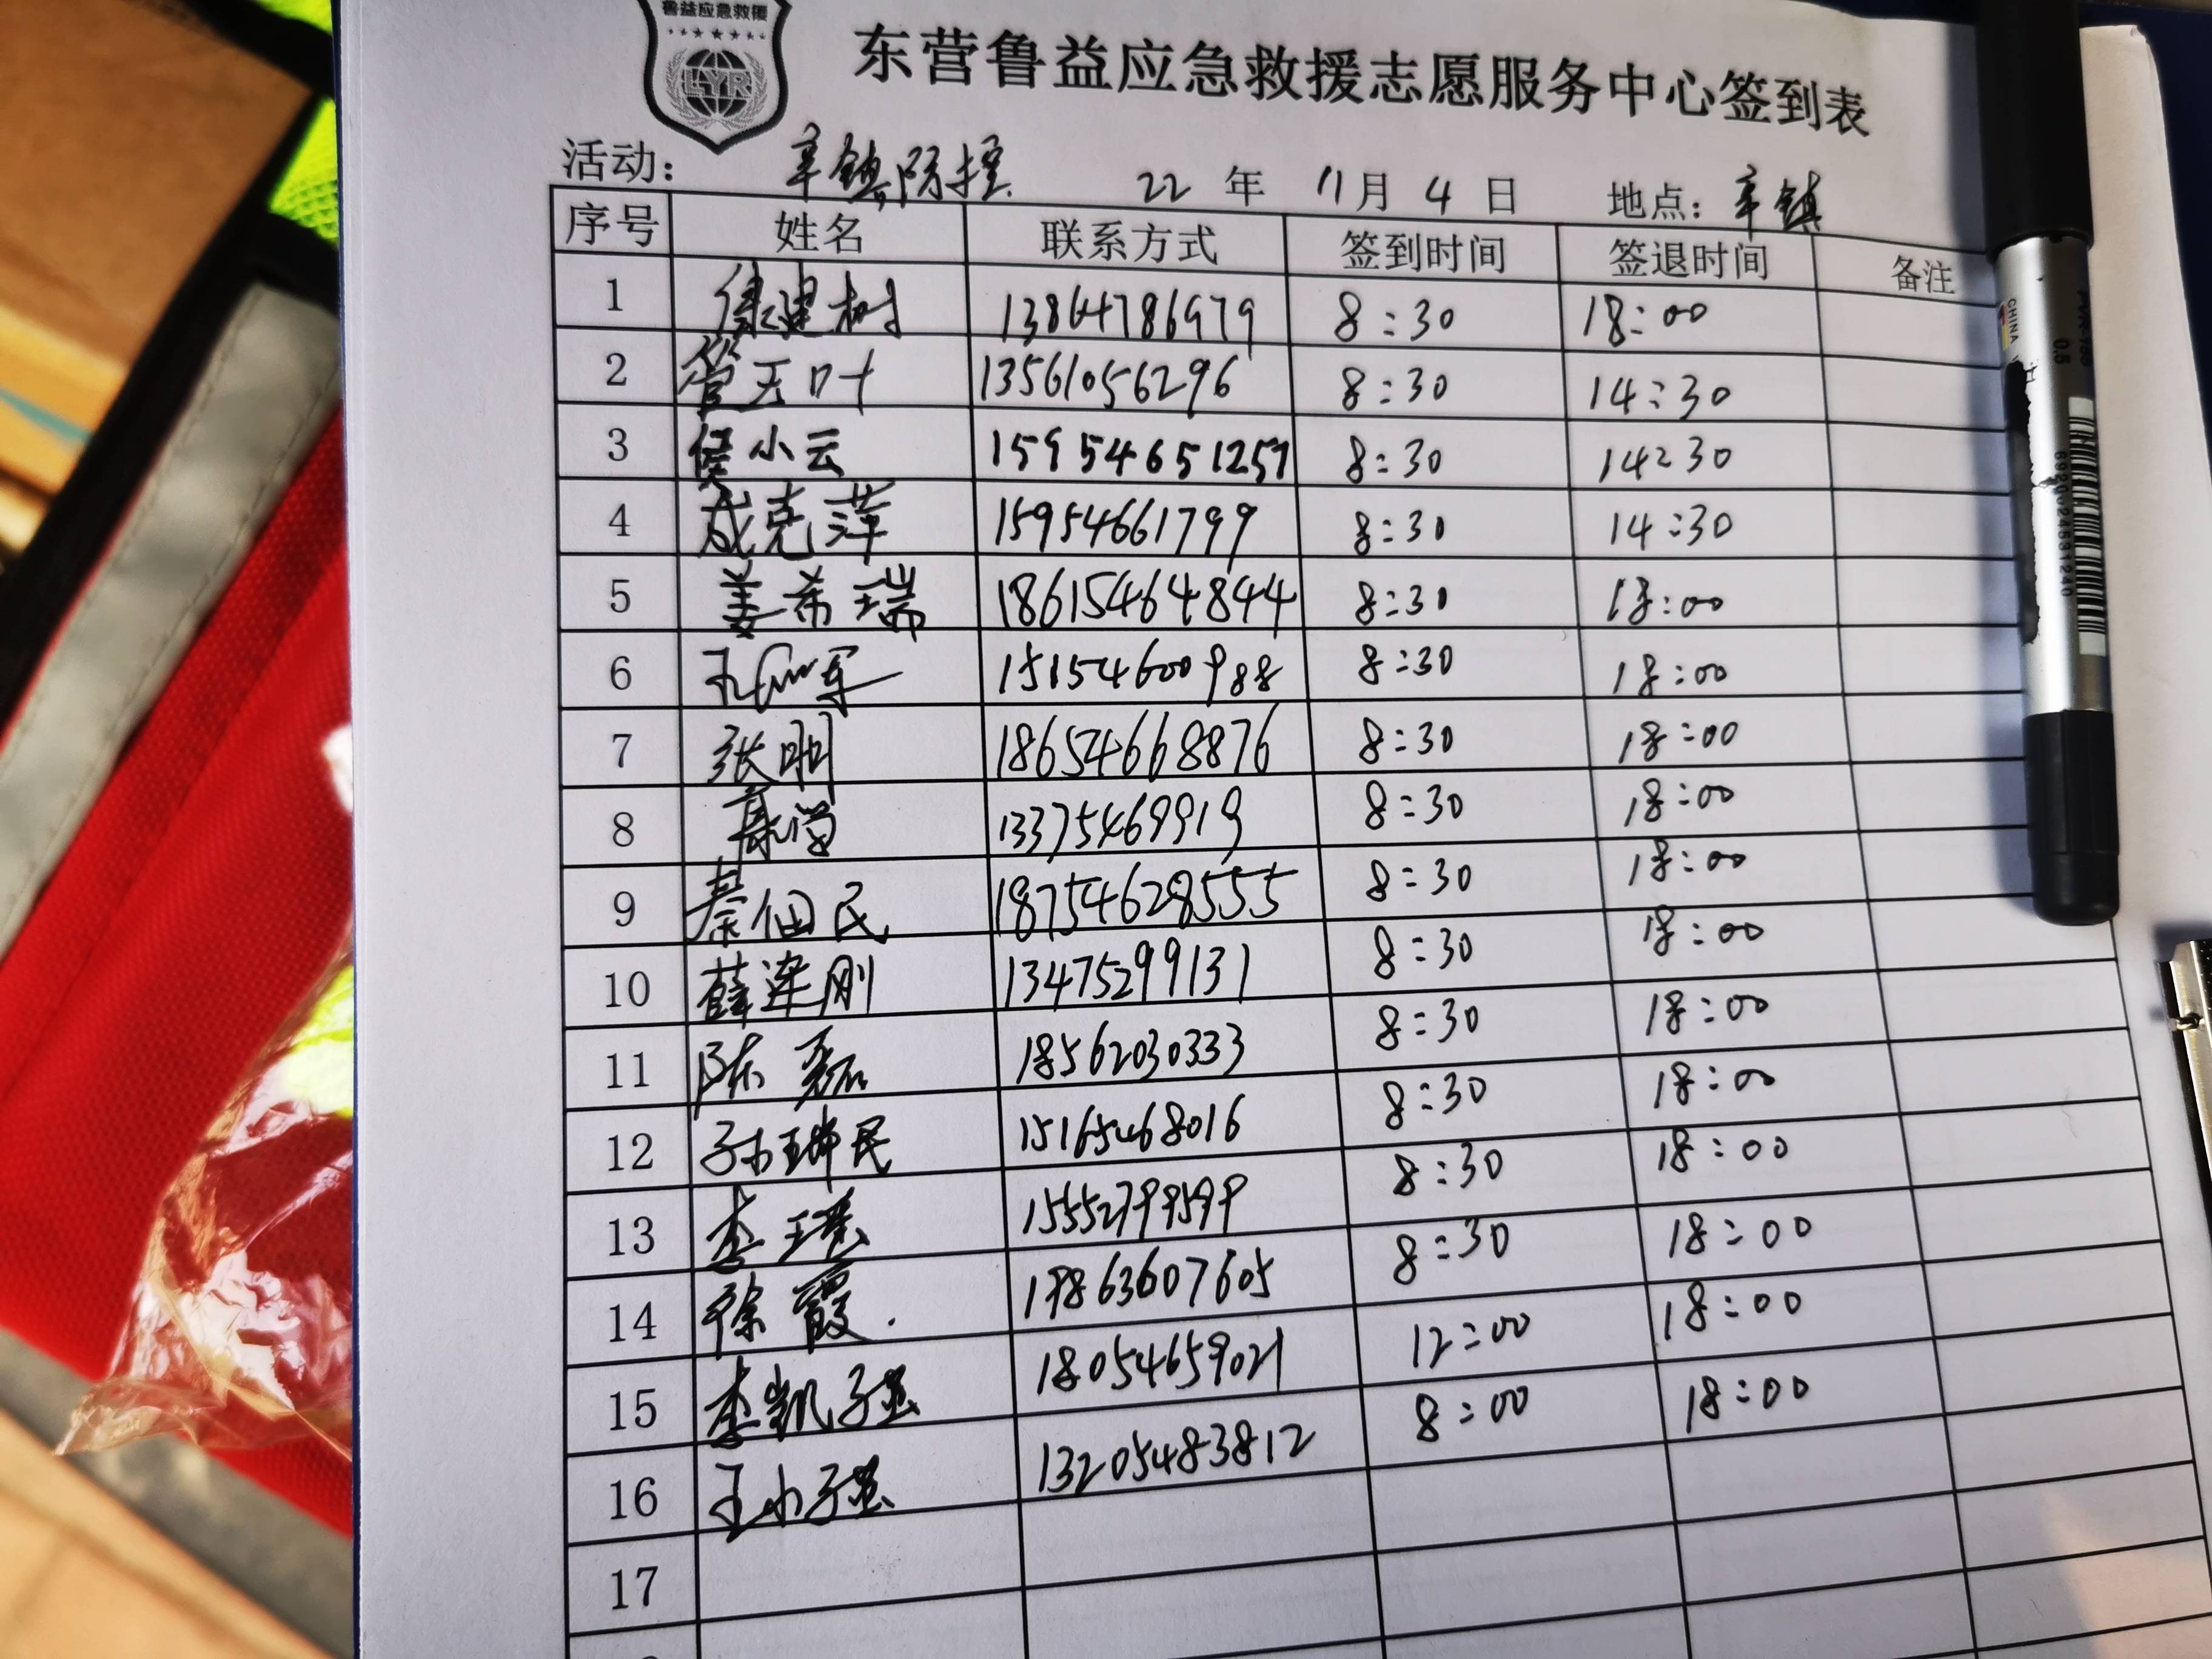 鲁益应急救援
LYR
东营鲁益应急救援志愿服务中心签到表
活动: 辛镇防控 22 年 11 月 4 日 地点: 辛镇
序号 姓名 联系方式 签到时间 签退时间 备注
1 徐建树 13864786979 8:30 18:00
2 管玉叶 13561056296 8:30 14:30
3 侯小云 15954651257 8:30 14:30
4 成克萍 15954661799 8:30 14:30
5 姜希瑞 18615464844 8:30 18:00
6 军 15154600988 8:30 18:00
7 张明 18654668876 8:30 18:00
8 13375469919 8:30 18:00
9 民 18754628555 8:30 18:00
10 薛连刚 13475299131 8:30 18:00
11 陈磊 18562030333 8:30 18:00
12 孙琳民 15165468016 8:30 18:00
13 李瑶 15552799599 8:30 18:00
14 徐霞 19863607605 8:30 18:00
15 李凯强 18054659021 12:00 18:00
16 王小强 13205483812 8:00 18:00
17
CHINA
0.5
6920724531240